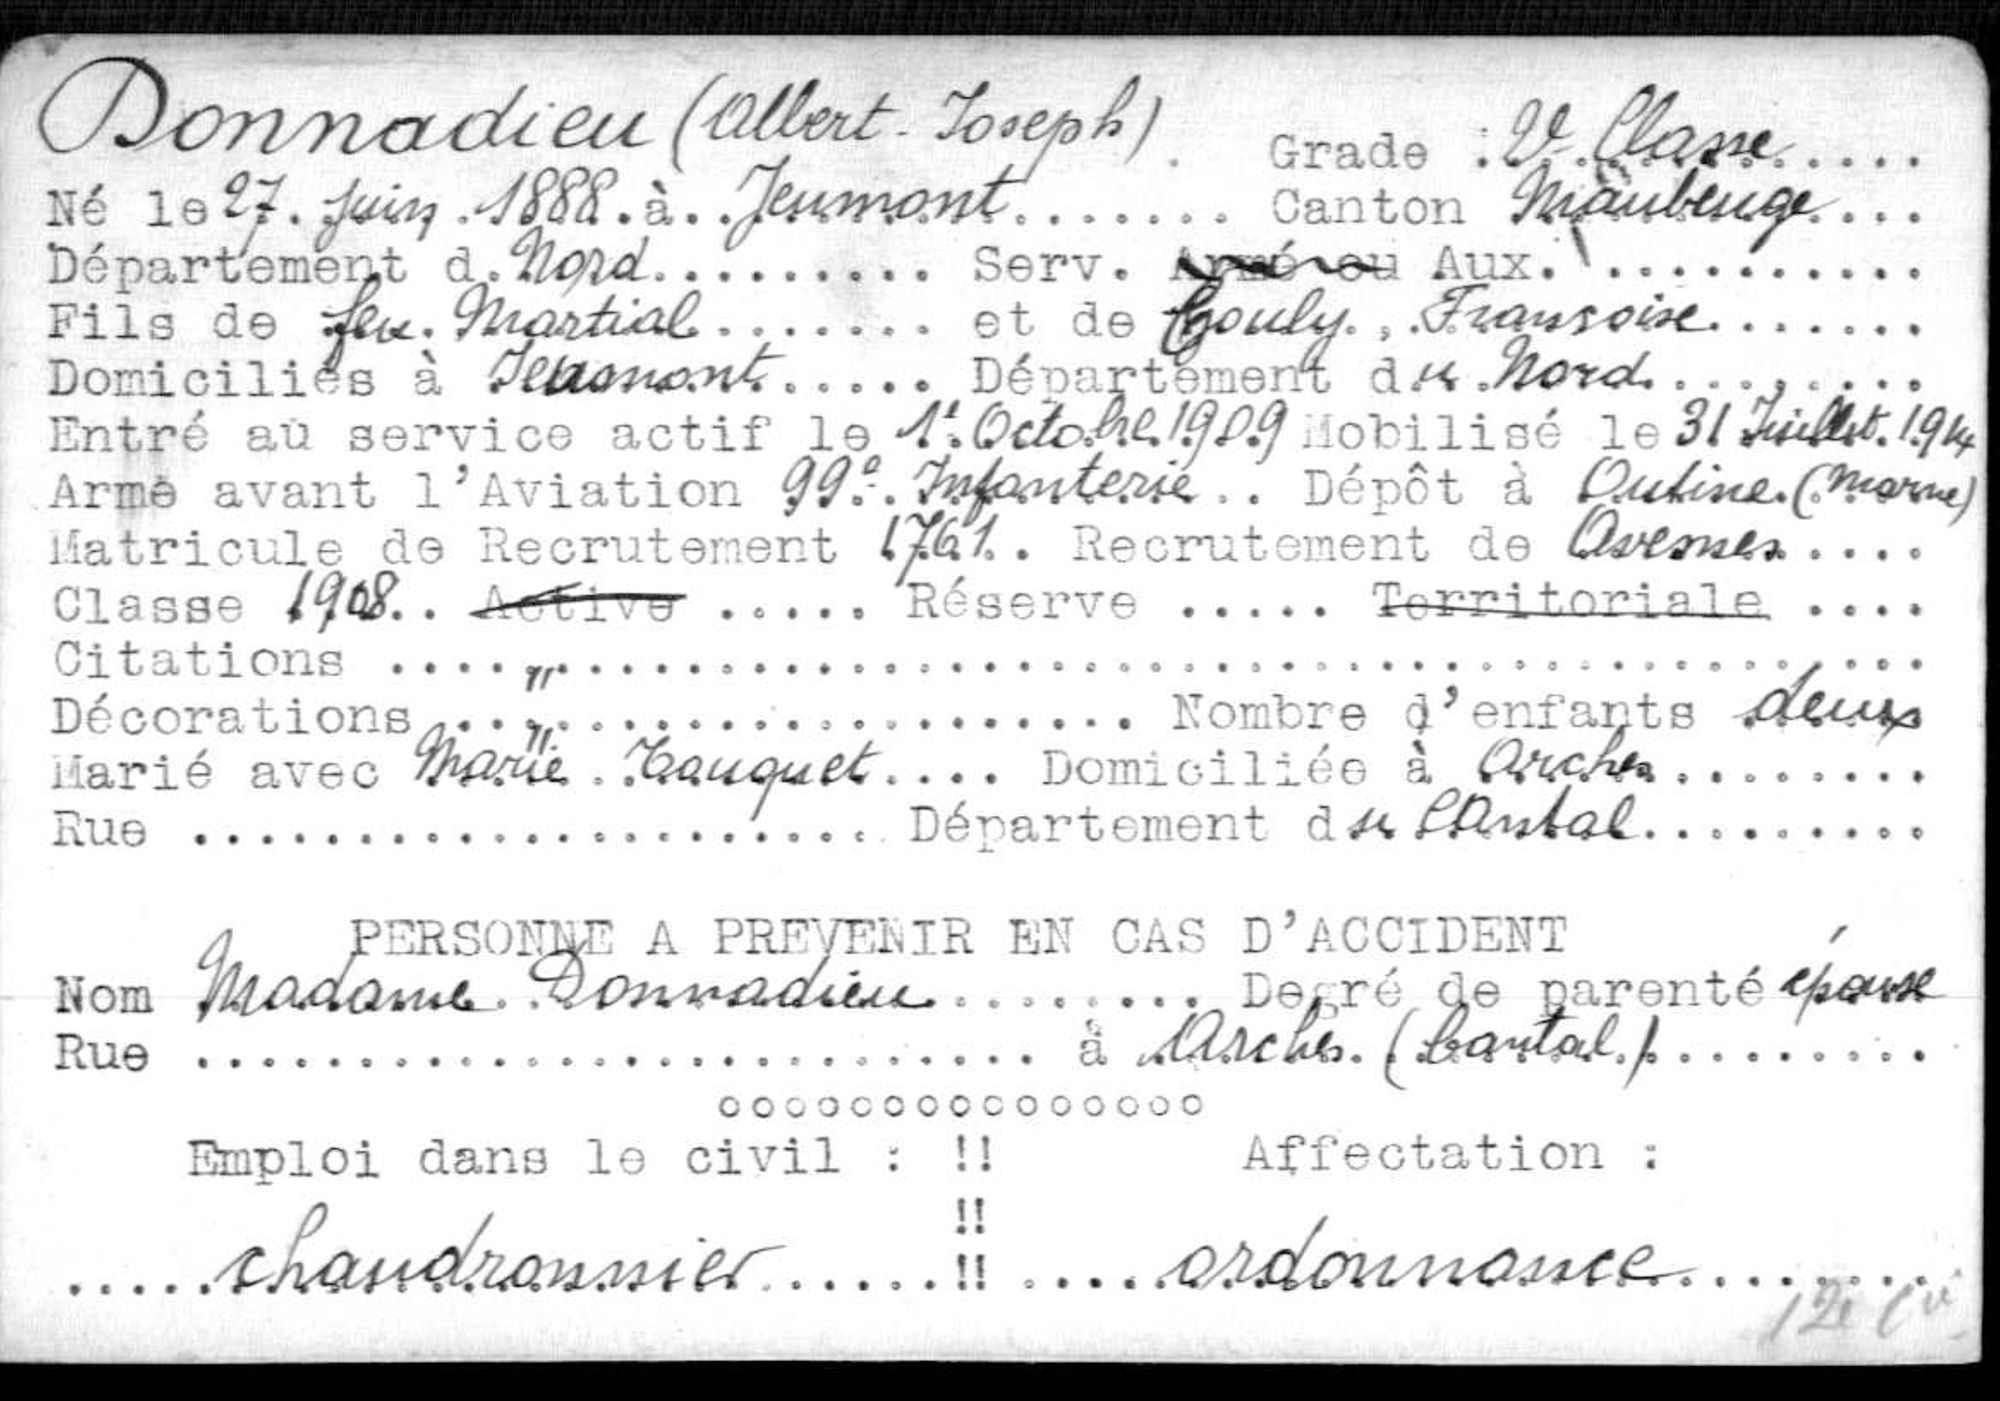 Donnadieu (Albert-Joseph). Grade : 2e Classe
Né le 27 juin 1888 à Jeumont Canton Maubeuge
Département d. Nord Serv. Armé ou Aux.
Fils de feu Martial et de Gouly, Françoise
Domiciliés à Jeumont Département du Nord
Entré au service actif le 1er Octobre 1909 Mobilisé le 31 Juillet 1914
Arme avant l'Aviation 99e Infanterie Dépôt à Outine (Marne)
Matricule de Recrutement 1761 Recrutement de Avesnes
Classe 1908 Active ..... Réserve ..... Territoriale ....
Citations .... " ....
Décorations .... " .... Nombre d'enfants deux
Marié avec Marie Touquet Domiciliée à Arches
Rue .... Département du Cantal
PERSONNE A PREVENIR EN CAS D'ACCIDENT
Nom Madame Donnadieu Degré de parenté épouse
Rue .... à Arches (Cantal)
Emploi dans le civil : !! Affectation :
!!
chaudronnier !! ordonnance